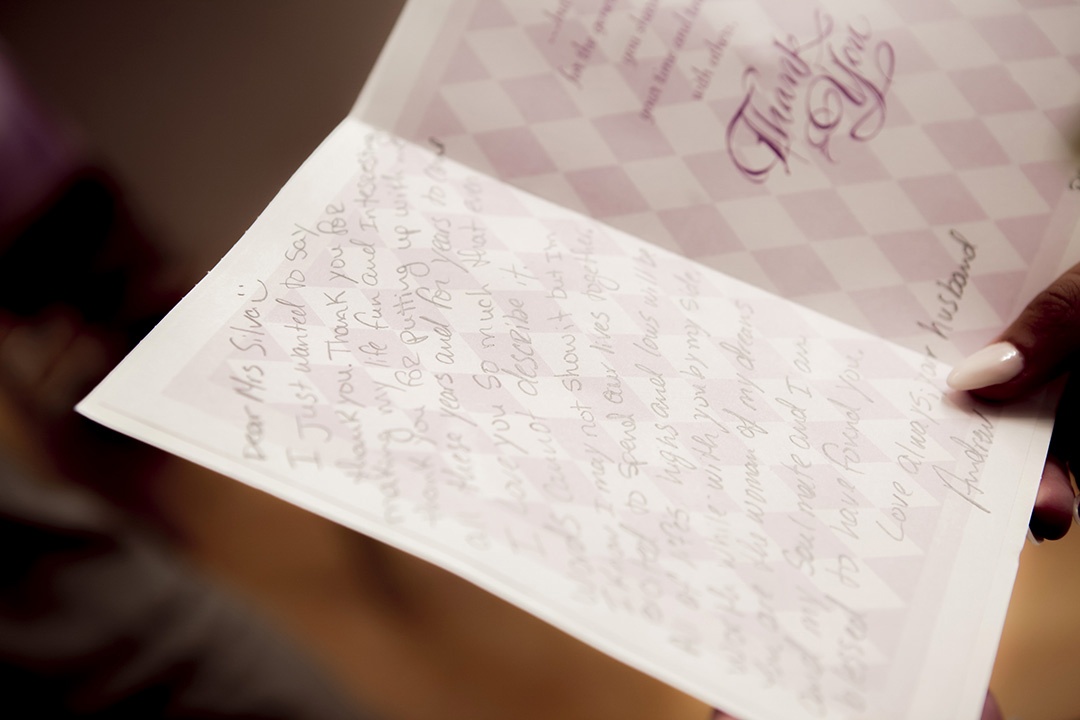 for the
you
your time and
with others.
Thank
You
Dear Mrs Silva :)
I Just wanted to say
thank you. Thank you for
making my life fun and Interesting
thank you for putting up with
all these years and for years to come
I Love you so much that even
words cannot describe it.
I know I may not show it but I'm
excited to spend our lives together.
All of its highs and lows will be
worth while with you by my side
You are the woman of my dreams
and my Soulmate and I am
blessed to have found you.
Love always, your husband
Andrew